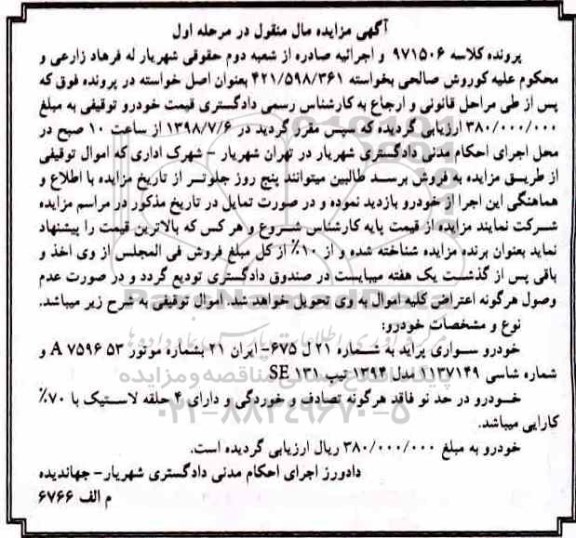 آگهی مزایده مال منقول در مرحله اول
پرونده کلاسه ۹۷۱۵۰۶ و اجرائیه صادره از شعبه دوم حقوقی شهریار له فرهاد زارعی و
محکوم علیه کوروش صالحی بخواسته ۴۲۱/۵۹۸/۳۶۱ بعنوان اصل خواسته در پرونده فوق که
پس از طی مراحل قانونی و ارجاع به کارشناس رسمی دادگستری قیمت خودرو توقیفی به مبلغ
۳۸۰/۰۰۰/۰۰۰ ارزیابی گردیده که سپس مقرر گردید در ۱۳۹۸/۷/۶ از ساعت ۱۰ صبح در
محل اجرای احکام مدنی دادگستری شهریار در تهران شهریار – شهرک اداری که اموال توقیفی
از طریق مزایده به فروش برسد طالبین میتوانند پنج روز جلوتر از تاریخ مزایده با اطلاع و
هماهنگی این اجرا از خودرو بازدید نموده و در صورت تمایل در تاریخ مذکور در مراسم مزایده
شرکت نمایند مزایده از قیمت پایه کارشناس شروع و هر کس که بالاترین قیمت را پیشنهاد
نماید بعنوان برنده مزایده شناخته شده و از ۱۰٪ از کل مبلغ فروش فی المجلس از وی اخذ و
باقی پس از گذشت یک هفته میبایست در صندوق دادگستری تودیع گردد و در صورت عدم
وصول هرگونه اعتراض کلیه اموال به وی تحویل خواهد شد. اموال توقیفی به شرح زیر میباشد.
نوع و مشخصات خودرو:
خودرو سواری پراید به شماره ۲۱ ل ۶۷۵–ایران ۲۱ بشماره موتور ۵۳ ۷۵۹۶ A و
شماره شاسی ۱۱۳۷۱۴۹ مدل ۱۳۹۴ تیپ ۱۳۱ SE
خودرو در حد نو فاقد هرگونه تصادف و خوردگی و دارای ۴ حلقه لاستیک با ۷۰٪
کارایی میباشد.
خودرو به مبلغ ۳۸۰/۰۰۰/۰۰۰ ریال ارزیابی گردیده است.
دادورز اجرای احکام مدنی دادگستری شهریار– جهاندیده
م الف ۶۷۶۶
ParsNamadData
پایگاه اطلاع رسانی مناقصه و مزایده
۰۲۱-۸۸۳۴۹۶۷۰-۵